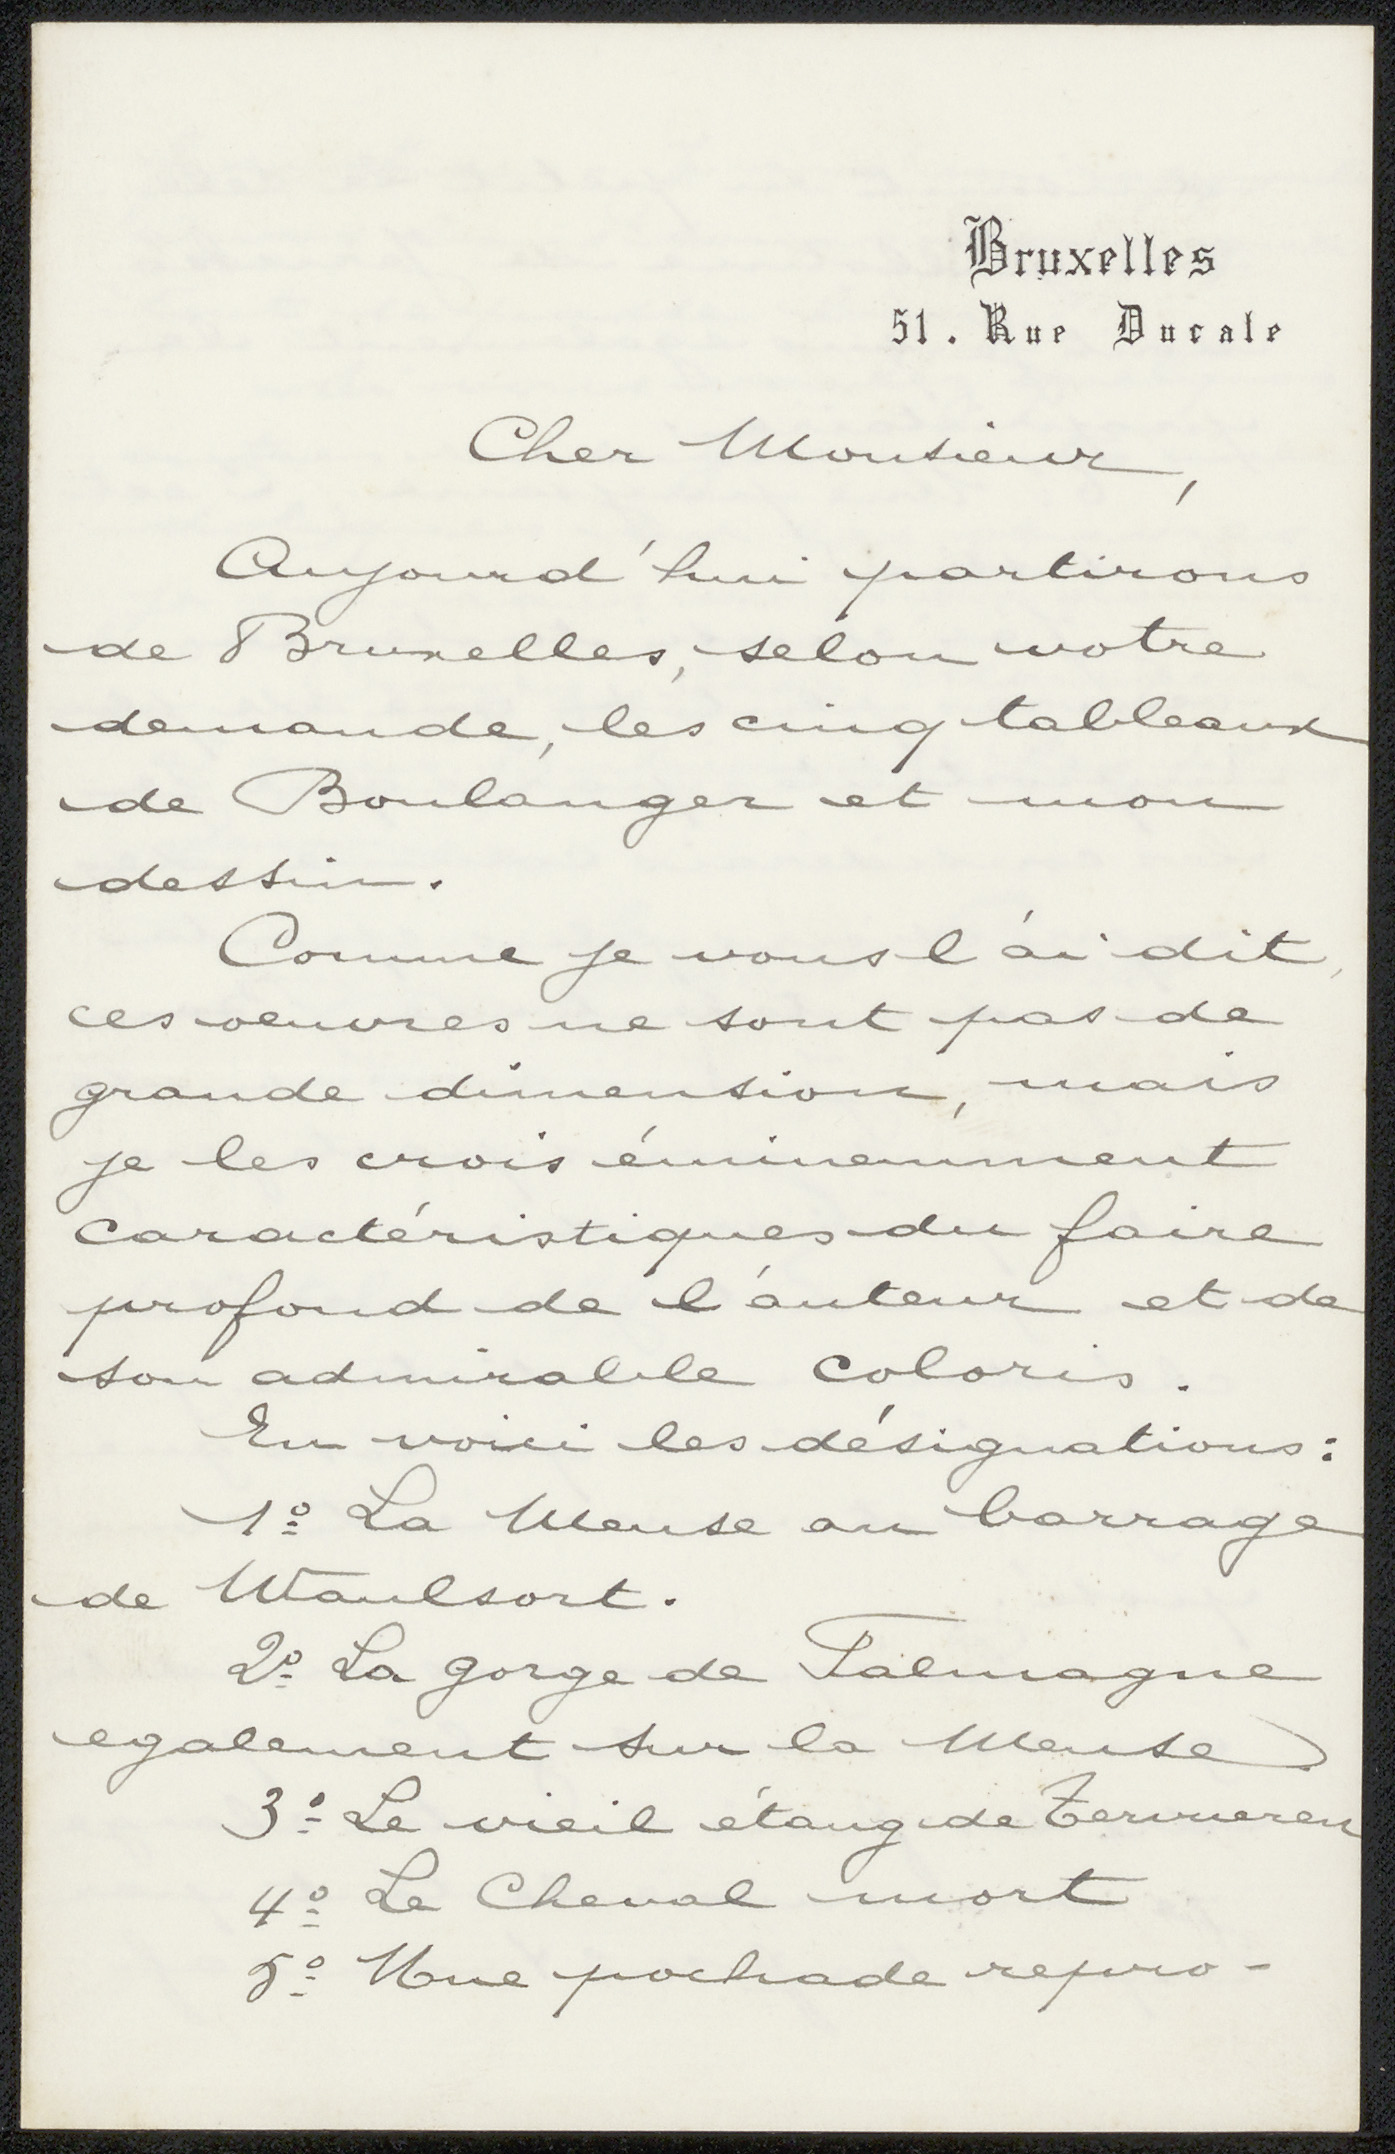 Bruxelles
51. Rue Ducale
Cher Monsieur,
Aujourd'hui partirons
de Bruxelles, selon votre
demande, les cinq tableaux
de Boulanger et mon
dessin.
Comme je vous l'ai dit,
ces oeuvres ne sont pas de
grande dimension, mais
je les crois éminemment
caractéristiques du faire
profond de l'auteur et de
son admirable coloris.
En voici les désignations:
1º La Meuse au barrage
de Waulsort.
2º La gorge de Falmagne
egalement sur la Meuse)
3º Le vieil étang de Tervueren
4º Le Cheval mort
5º Une pochade repro-